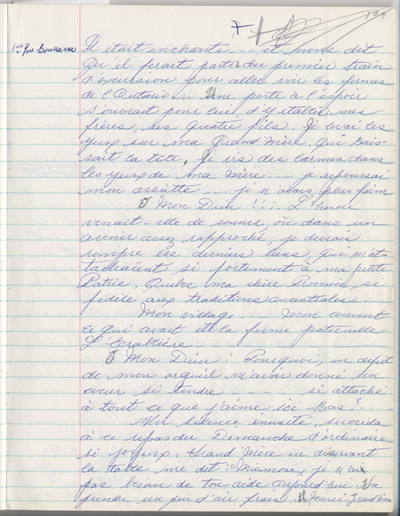 199
Il était enchanté ... et nous dit
qu'il ferait parti du premier train
d'excursion pour aller voir les fermes
de l'Ontario ... Une porte à l'espoir
s'ouvrait pour lui, d'y établir mes
frères, ses quatre fils. Je levai les
yeux sur ma Grand'mère, qui bais-
sait la tête, Je vis des larmes dans
les yeux de ma Mère ... je repoussai
mon assiette ... je n'avais plus faim
Ô Mon Dieu !!!! L'heure
venait-elle de sonner, où dans un
avenir assez rapproché je devais
rompre les derniers liens, qui m'at-
tachaient si fortement à ma petite
Patrie, Québec ma chère Province, si
fidèle aux traditions ancestrales.
Mon village ....... mon couvent
ce qui avait été la ferme paternelle
L'Érablière.
Ô Mon Dieu ! Pourquoi, en dépit
de mon orgueil m'avoir donné un
coeur si tendre ........ si attaché
à tout ce que j'aime ici Bas
Mon silence inusité, succéda
à ce repas du Dimanche d'ordinaire
si joyeux. Grand'Mère en desservant
la table me dit: "Mimosa, je n'ai
pas besoin de ton aide aujourd'hui. Va
prendre un peu d'air frais. "Merci, Grand'm